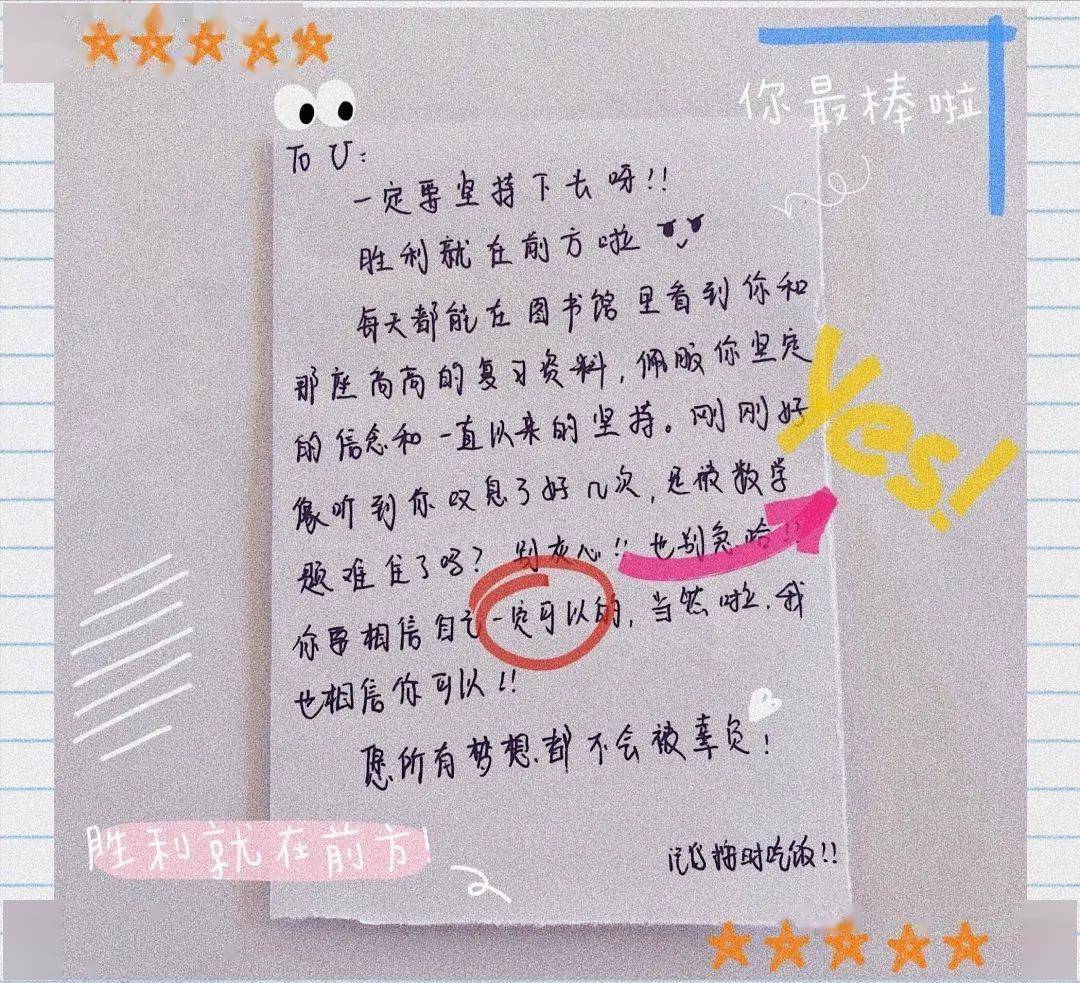 你最棒啦
To U:
一定要坚持下去呀!!
胜利就在前方啦
每天都能在图书馆里看到你和
那座高高的复习资料,佩服你坚定
的信念和一直以来的坚持。刚刚好
像听到你叹息了好几次,是被数学
题难住了吗?别灰心!!也别急哈!!
你要相信自己一定可以的,当然啦,我
也相信你可以!!
愿所有梦想都不会被辜负!
记得按时吃饭!!
Yes!
胜利就在前方!